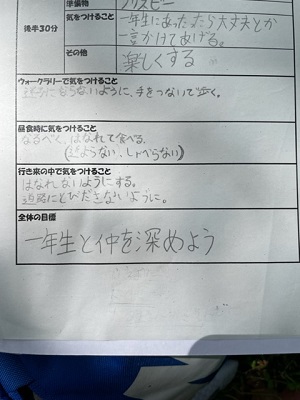 準備物
フリスビー
後半30分
気をつけること
一年生にあったら大丈夫とか
一言かけてあげる。
その他
楽しくする
ウォークラリーで気をつけること
ように、手をつないで歩く。
昼食時に気をつけること
なるべく、はなれて食べる。
しゃべらない)
行き来の中で気をつけること
はなれないようにする。
道路にとびださないように。
全体の目標
一年生と仲を深めよう